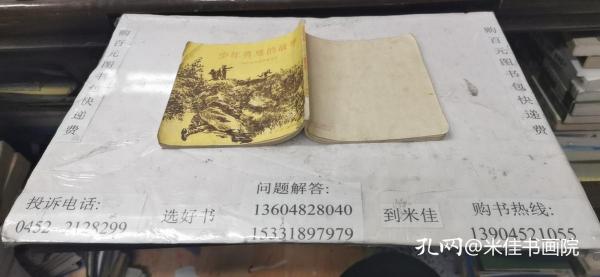 购百元图书包快递费
购百元图书包快递费
少年英雄的故事
投诉电话:
0452—2128299
选好书
问题解答:
13604828040
15331897979
到米佳
购书热线:
13904521055
孔网@米佳书画院